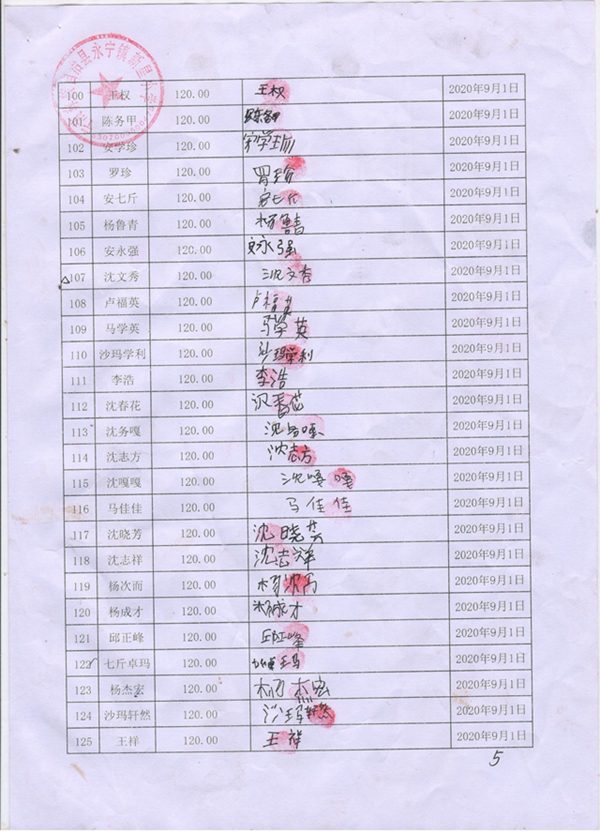 治县永宁镇新星小学
100 王权 120.00 王权 2020年9月1日
101 陈务甲 120.00 陈务甲 2020年9月1日
102 安学珍 120.00 安学珍 2020年9月1日
103 罗珍 120.00 罗珍 2020年9月1日
104 安七斤 120.00 安七斤 2020年9月1日
105 杨鲁青 120.00 杨鲁青 2020年9月1日
106 安永强 120.00 安永强 2020年9月1日
107 沈文秀 120.00 沈文秀 2020年9月1日
108 卢福英 120.00 卢福英 2020年9月1日
109 马学英 120.00 马学英 2020年9月1日
110 沙玛学利 120.00 沙玛学利 2020年9月1日
111 李浩 120.00 李浩 2020年9月1日
112 沈春花 120.00 沈春花 2020年9月1日
113 沈务嘎 120.00 沈务嘎 2020年9月1日
114 沈志方 120.00 沈志方 2020年9月1日
115 沈嘎嘎 120.00 沈嘎嘎 2020年9月1日
116 马佳佳 120.00 马佳佳 2020年9月1日
117 沈晓芳 120.00 沈晓芳 2020年9月1日
118 沈志祥 120.00 沈志祥 2020年9月1日
119 杨次而 120.00 杨次而 2020年9月1日
120 杨成才 120.00 杨成才 2020年9月1日
121 邱正峰 120.00 邱正峰 2020年9月1日
122 七斤卓玛 120.00 2020年9月1日
123 杨杰宏 120.00 杨杰宏 2020年9月1日
124 沙玛轩然 120.00 沙玛轩然 2020年9月1日
125 王祥 120.00 王祥 2020年9月1日
5